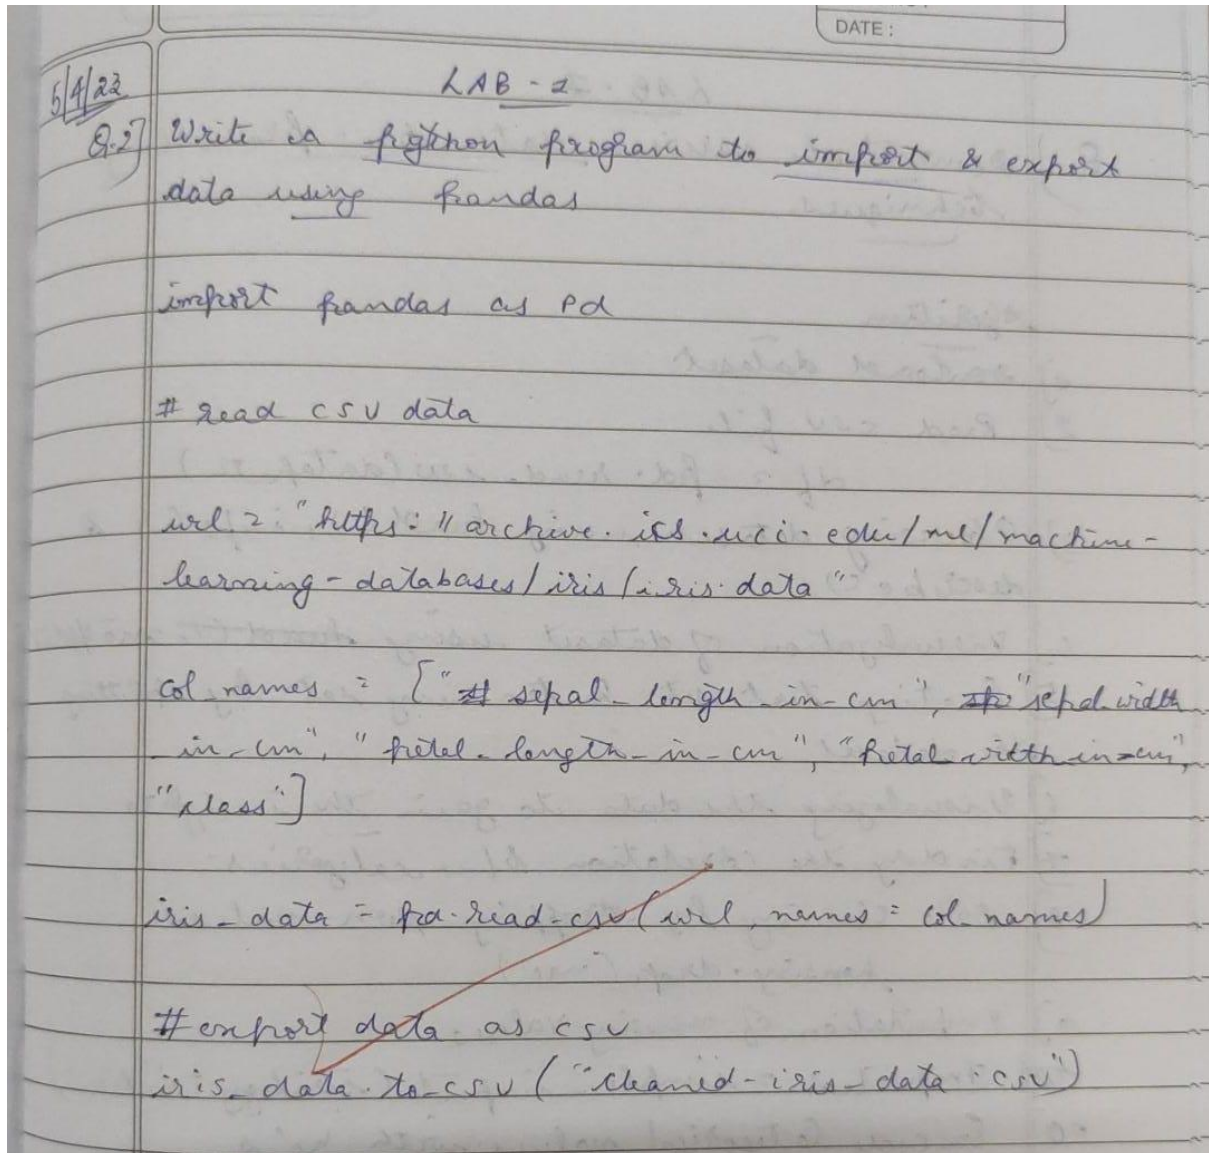 DATE :
5/4/23
LAB - 2
Q.2] Write a python program to import & export
data using pandas
import pandas as pd
# read csv data
url = "https://archive.ics.uci.edu/ml/machine-
learning-databases/iris/iris.data"
col_names = ["sepal_length_in_cm", "sepal_width
_in_cm", "petal_length_in_cm", "petal_width_in_cm",
"class"]
iris_data = pd.read_csv(url, names = col_names)
# export data as csv
iris_data.to_csv("cleaned-iris_data.csv")